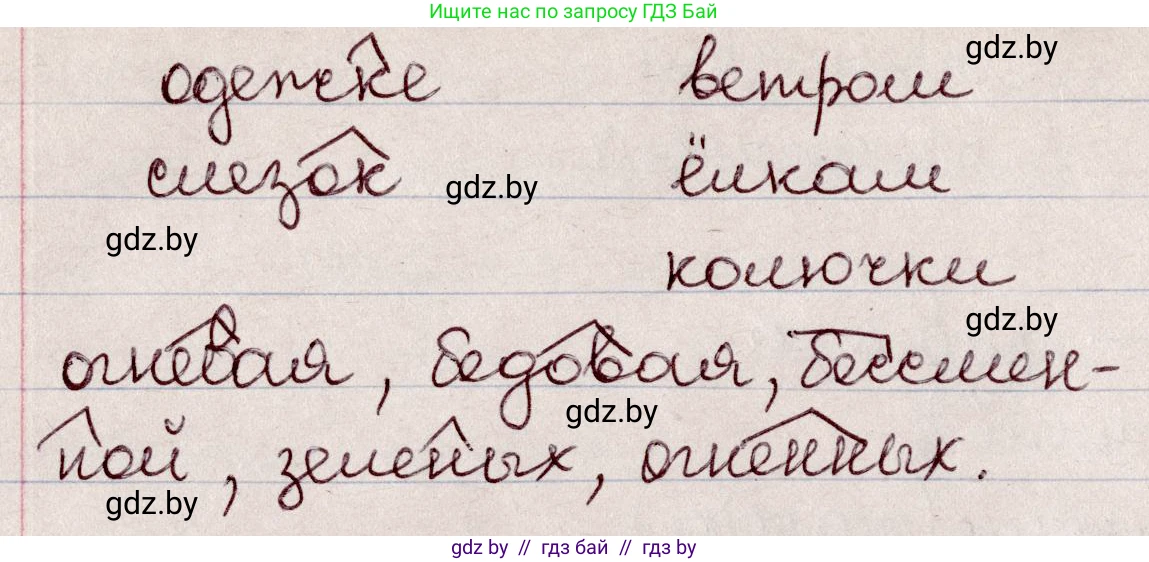 Ищите нас по запросу ГДЗ Бай
одежке ветром gdz.by
слезок gdz.by ёлкам
gdz.by колючки
gdz.by
огневая, бедовая, бессмен-
gdz.by
ной, зеленых, огненных.
gdz.by
gdz by // гдз бай // гдз by